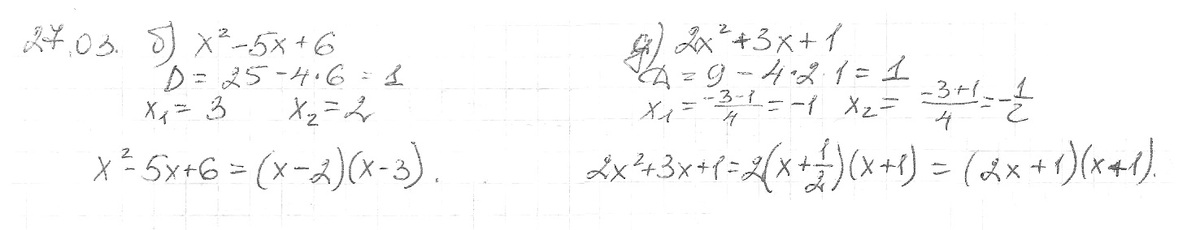 27.03. б) x² - 5x + 6
D = 25 - 4·6 = 1
x₁ = 3 x₂ = 2
x² - 5x + 6 = (x - 2)(x - 3).
д) 2x² + 3x + 1
D = 9 - 4·2·1 = 1
x₁ = (-3-1)/4 = -1 x₂ = (-3+1)/4 = -1/2
2x² + 3x + 1 = 2(x + 1/2)(x + 1) = (2x + 1)(x + 1).